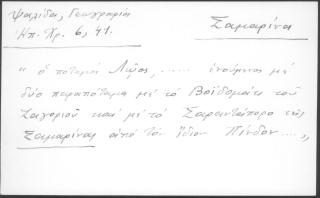 Ψαλίδα, Γεωγραφία
Ηπ. Χρ. 6, 41.
Σαμαρίνα
" ὁ ποταμὸς Ἀῶος, ...... ἑνούμενος μὲ
δύο παραπόταμα μὲ τὸ Βοϊδομάτι τοῦ
Ζαγορίου καὶ μὲ τὸ Σαραντάπορο τῆς
Σαμαρίνας ἀπὸ τὸν ἴδιον Πίνδον ....,,